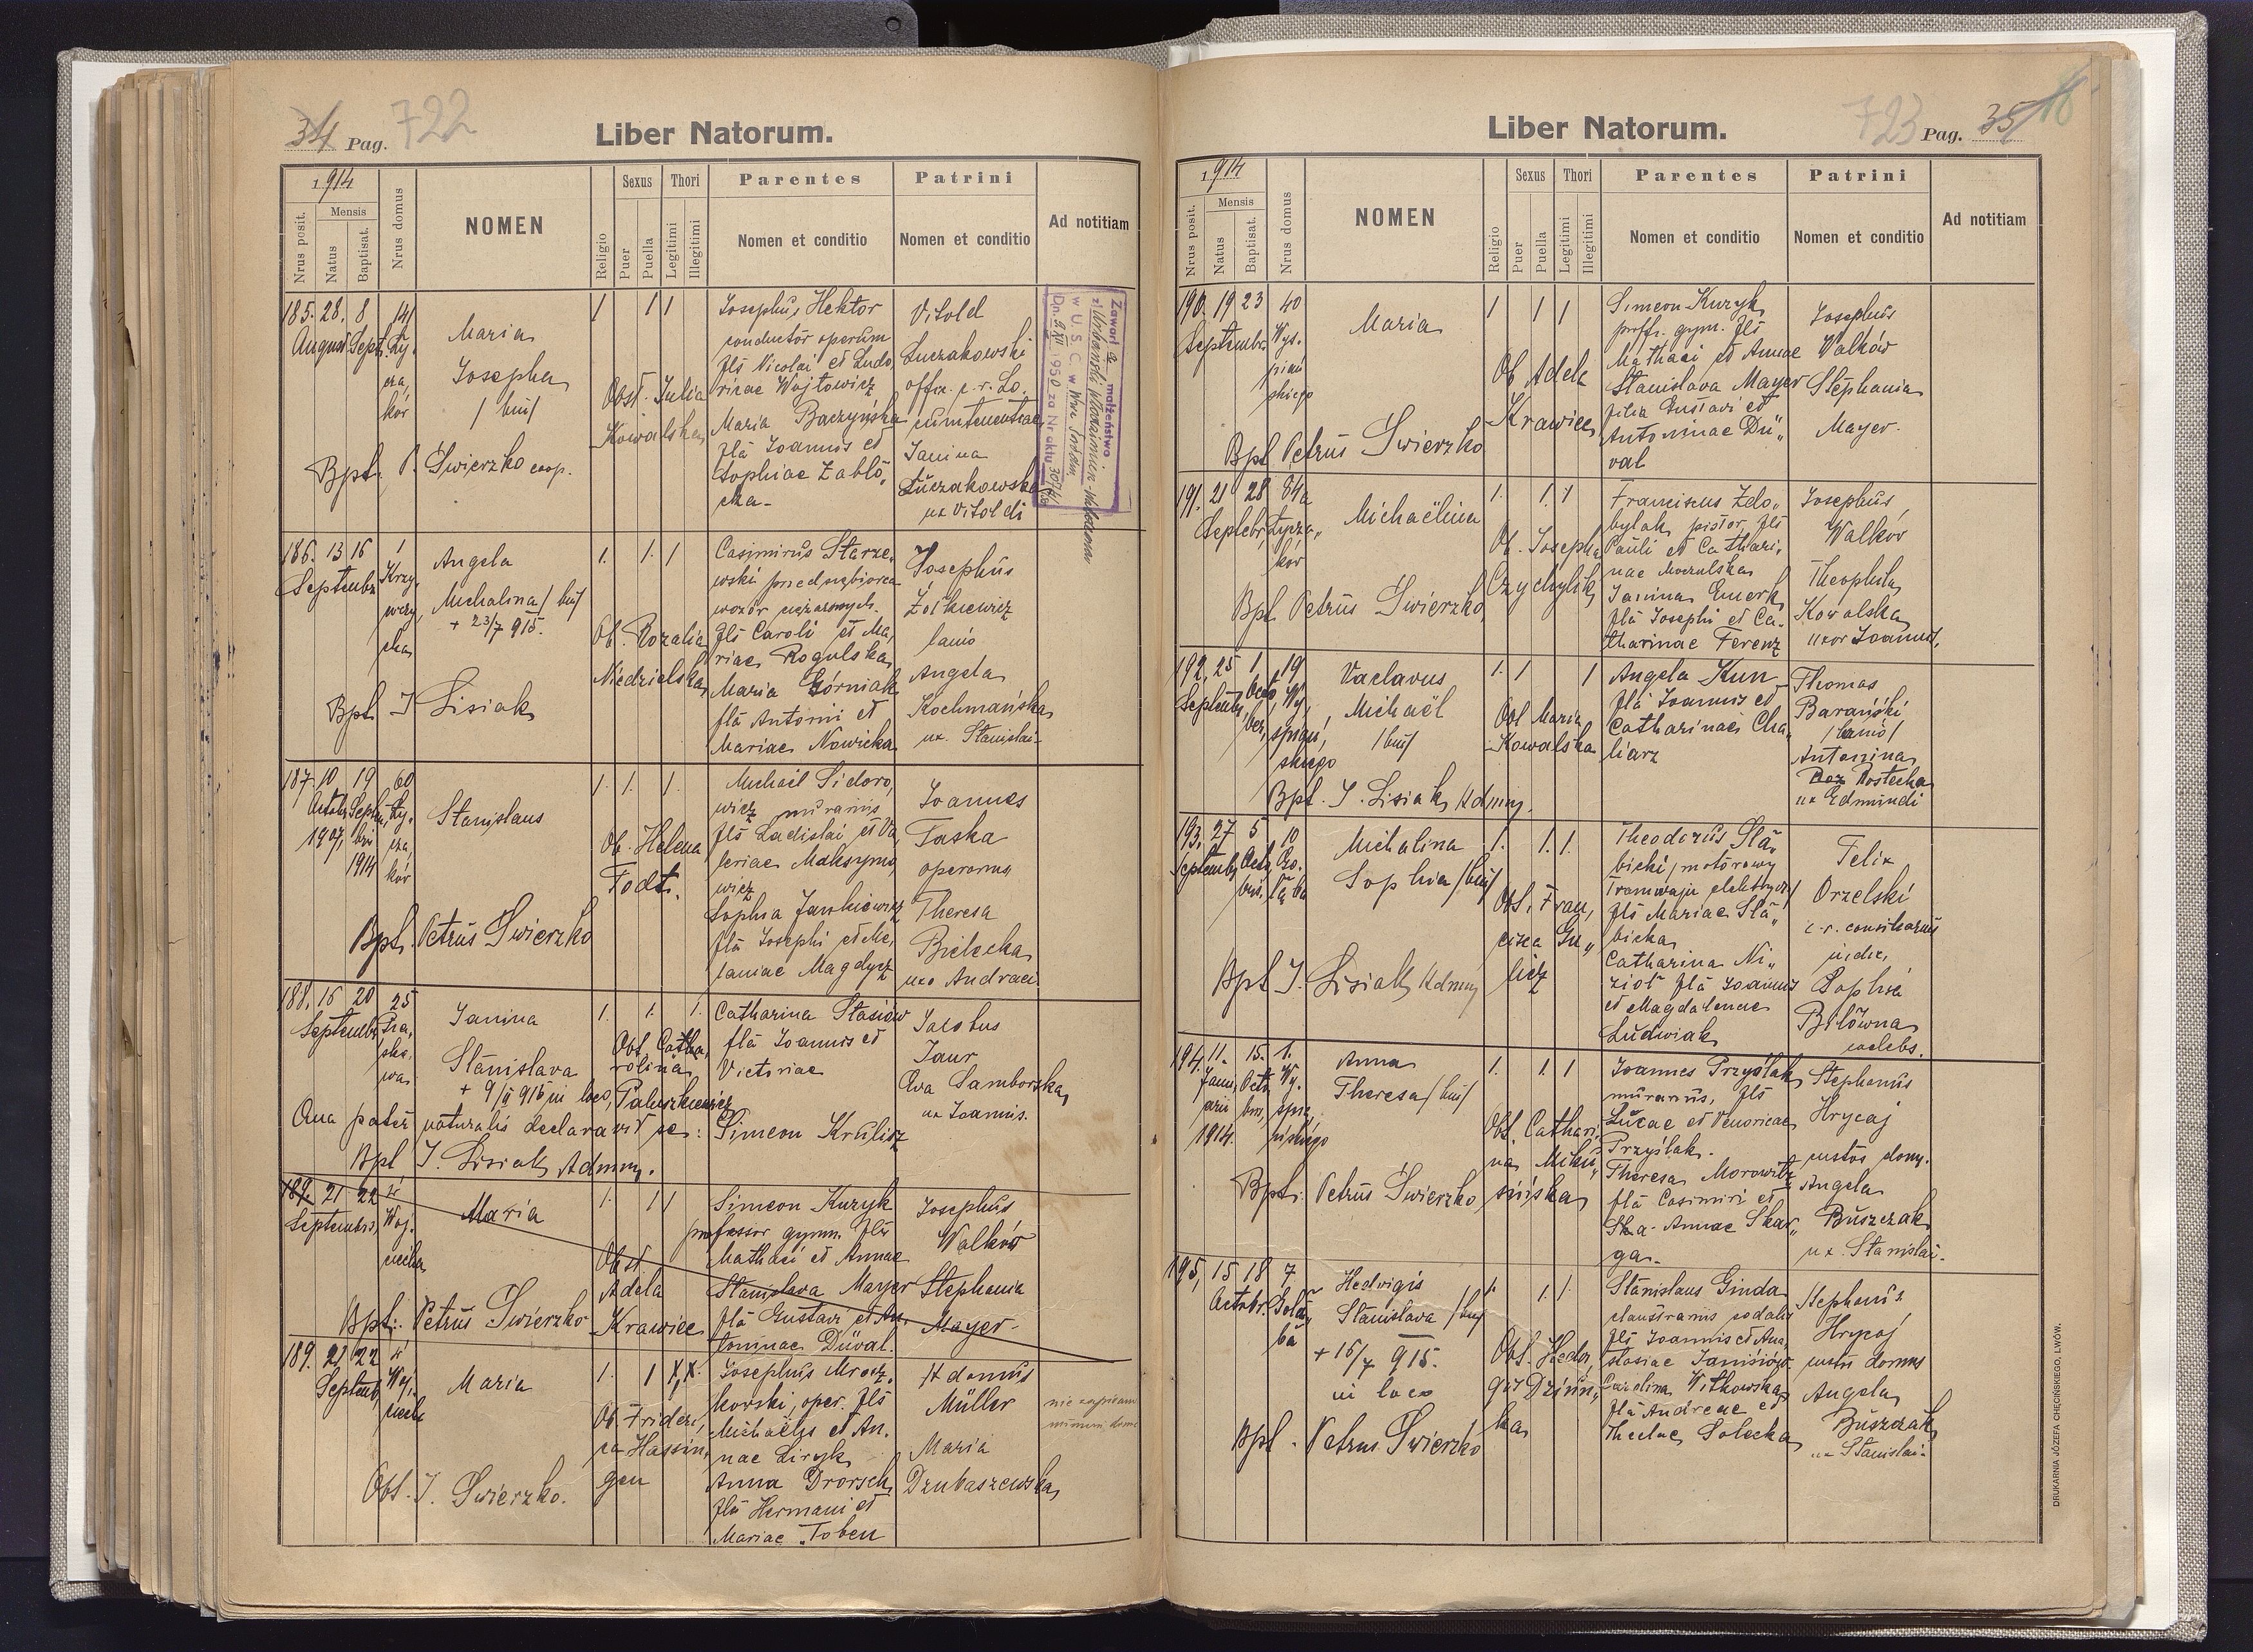 34 Pag. 722
Liber Natorum.
1914
Nrus posit.
Mensis
Natus
Baptisat.
Nrus domus
NOMEN
Religio
Sexus
Puer
Puella
Thori
Legitimi
Illegitimi
Parentes
Nomen et conditio
Patrini
Nomen et conditio
Ad notitiam
185. 28. 8 14
August. Sept. Ły,
cza,
kór
Maria
Josepha
/bin/
Bpt. P. Świerzko coop.
1 1 1
Obst. Julia
Kowalska
Josephus Hektor
conductor operum
fls Nicolai et Ludo,
vicae Wojtowicz
Maria Baczyńska
fla Joannis et
Sophiae Zabłó,
cka
Vitold
Łuczakowski
offic. c. r. Lo.
cumtenentiae
Janina
Łuczakowska
ux Vitoldi
Zawarł a małżeństwo
w U. S. C. w
Dn. 1950 za Nr aktu
186. 13 16 1
Septembr. Krzy,
wczy,
cka
Angela
Michalina /bin/
+ 23/7 915.
Bpt J Lisiak
1. 1. 1
Ob. Rozalia
Niedzielska
Casimirus Starze,
wski przedsiębiorca
wozów ciężarowych.
fls Caroli et Ma,
riae Rogulska
Maria Górniak
fla Antonii et
Mariae Nowicka
Josephus
Żółkiewicz
lanio
Angela
Kochmańska
ux. Stanislai
187. 10 19 60
Octobr. Septem, Ły,
1907, bri cza,
1914 kór
Stanislaus
Bpt. Petrus Świerzko
1. 1. 1.
Ob. Helena
Todt.
Michael Sidoro,
wicz murarius
fls Ladislai et Va,
leriae Maksymo,
wicz
Sophia Jankiewicz
fla Josephi et Me,
laniae Magdycz
Joannes
Taska
operarius
Theresa
Bielecka
uxo Andreae
188. 16 20 25
Septembr. Pra,
sko,
wa
Janina
Stanislava
+ 9/II 915 in loco,
1. 1. 1.
Obt Catha,
rolina,
Paluszkiewicz
Catharina Stasiów
fla Joannis et
Victoriae
Jacobus
Jaur
Eva Samborska
ux Joannis.
Qua pater naturalis declaravit se: Simeon Krulisz
Bpt J. Lisiak Admin.
189. 21 22 4
Septembris, Woj,
ciecha
Maria
Bpt. Petrus Świerzko
1. 1 1
Obst
Adela
Krawiec
Simeon Kuzyk
professor gymn. fls
Mathaei et Annae
Stanislava Mayer
fla Gustavi et An,
toninae Düval.
Josephus
Walków
Stephania
Mayer
189. 21 22 4
Septemb, Woj,
ciecha
Maria
Obt. J. Świerzko.
1. 1 X, X.
Ob. Frideri,
ca Hassin,
gen
Josephus Mrocz,
kowski, oper. fls
Michaëlis et An,
nae Liryk
Anna Drorsch
fla Hermani et
Mariae Toben
Adamus
Müller
Maria
Dzubaszewska
nie zapisano
723 Pag. 35
Liber Natorum.
1914
Nrus posit.
Mensis
Natus
Baptisat.
Nrus domus
NOMEN
Religio
Sexus
Puer
Puella
Thori
Legitimi
Illegitimi
Parentes
Nomen et conditio
Patrini
Nomen et conditio
Ad notitiam
190. 19 23 40
Septembr. Wys,
piań
skiego
Maria
Bpt Petrus Świerzko
1 1 1
Ob Adela
Krawiec
Simeon Kuzyk
proff. gym. fls
Mathaei et Annae
Stanislava Mayer
filia Gustavi et
Antoninae Dü,,
val
Josephus
Walków
Stephania
Mayer
191. 21 28 84a
Septebr, Łycza,,
kór
Michaëlina
Bpt Petrus Świerzko
1. 1. 1
Ob. Josepha
Czychylik
Franciscus Zdo,,
bylak pistor, fls
Pauli et Cathari,
nae Moczulska
Janina Emerk
fla Josephi et Ca,
tharinae Ferenz
Josephus
Walków
Theophila
Kowalska
uxor Joannis,
192. 25 1. 19
Septemb, Octo, Wy,
ber, spiań,
skiego
Vaclavus
Michaël
/bin/
Bpt. J. Lisiak Admin.
1. 1 1
Obt Maria
Kowalska
Angela Kun
fla Joannis et
Catharinae Cha,
liarz
Thomas
Barański
/lanio/
Antonina
Rostecka
ux Edmundi
193. 27 5 10
Septemb, Octo,
bris.
Michalina
Sophia /bin/
Bpt J. Lisiak Admin
1. 1. 1.
Obst. Fran,
cisca Gu,,
licz
Theodorus Sła,
bicki /motorowy
Tramwaju elektrycz/
fls Mariae Sła,,
bicka
Catharina Ni,,
ziol fla Joannis
et Magdalenae
Ludwiak
Felix
Orzelski
c. r. consiliarius
judic,
Sophia
Biłówna
caelebs.
194. 11. 15. 1.
Janu, Octo, Wy,
arii bri, spia,
1914. ńskiego
Anna
Theresa /bin/
Bpt. Petrus Świerzko
1. 1. 1
Obt. Cathari,
na Miku,
sińska
Joannes Przyślak
murarius, fls
Lucae et Venoricae
Przyślak.
Theresa Morowitz
fla Casimiri et
Ska. Annae Skar,,
ga
Stephanus
Hrycaj
custos dom.
Angela
Buszczak
ux. Stanislai.
195, 15 18 7
Octobr. Gołą,
ba
Hedvigis
Stanislava /bin/
+ 16/7 915.
in loco
Bpt. Petrus Świerzko
1. 1. 1.
Obt. Hedvi,
gis Dziun,
ka
Stanislaus Ginda
claustrarius sodalis
fls Joannis et Ana,
stasiae Janisiów
Carolina Witkowska
fla Andreae et
Theclae Solecka
Stephanus
Hrycaj
custos domus
Angela
Buszczak
ux Stanislai.
DRUKARNIA JÓZEFA CHĘCIŃSKIEGO, LWÓW.